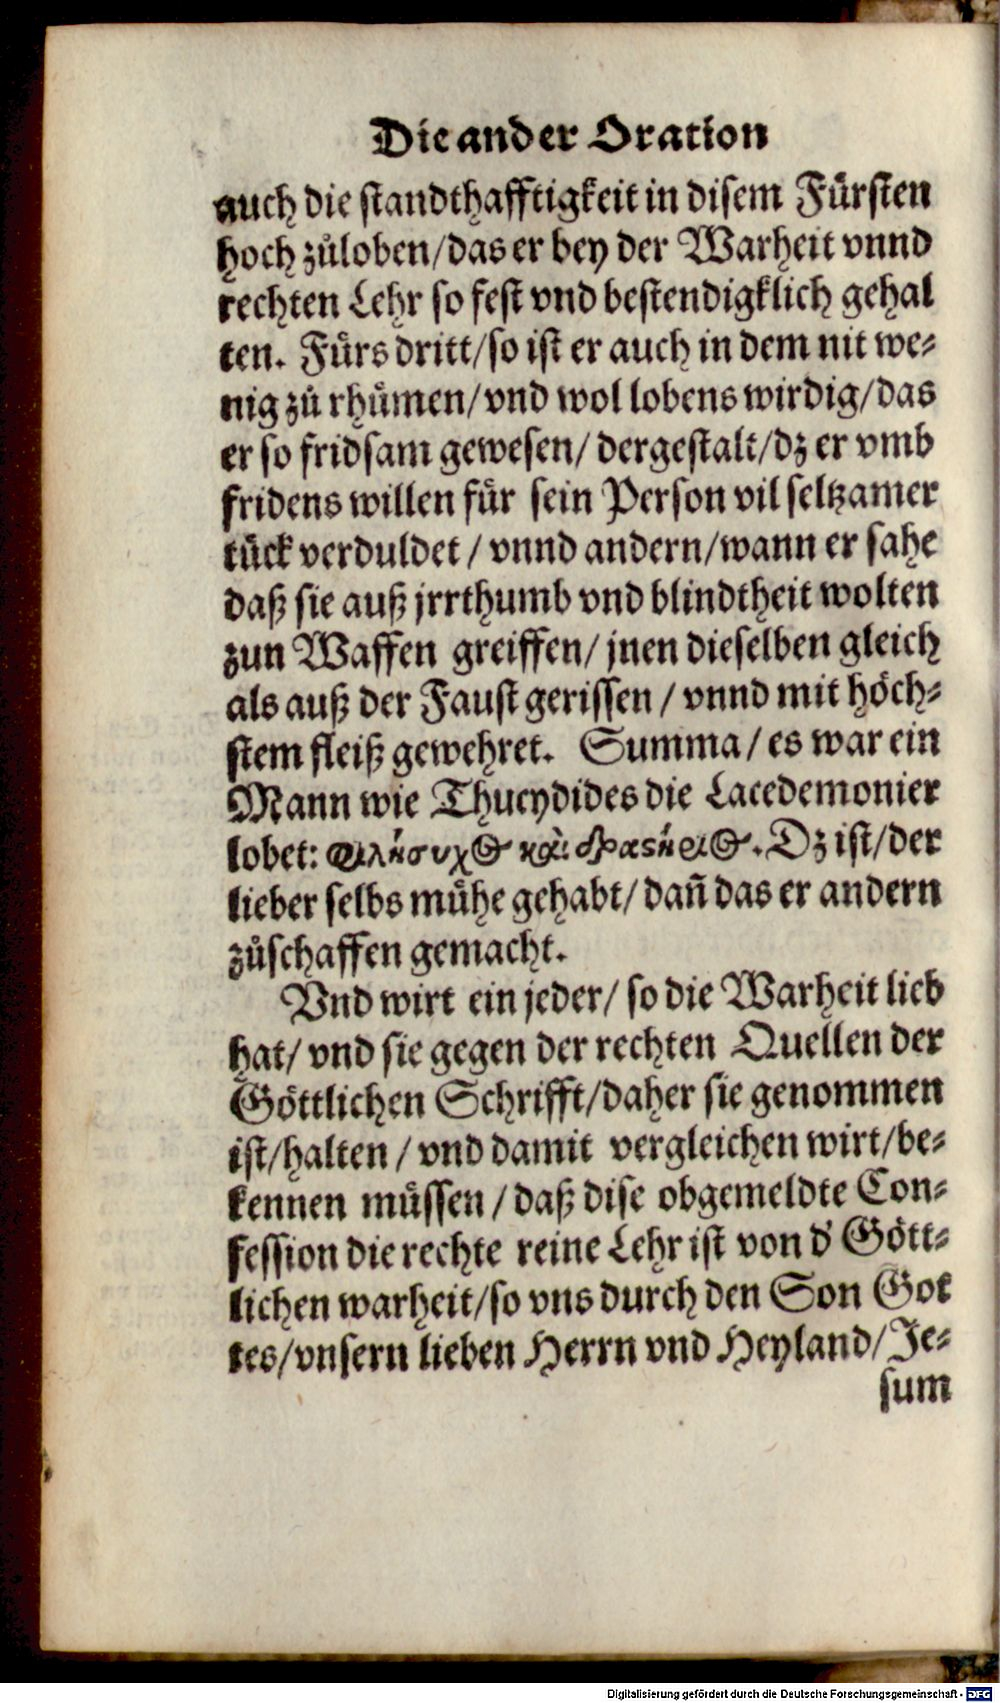 Die ander Oration
auch die standthafftigkeit in disem Fürsten
hoch zůloben/das er bey der Warheit vnnd
rechten Lehr so fest vnd bestendigklich gehal
ten. Fürs dritt/so ist er auch in dem nit we-
nig zů rhümen/vnd wol lobens wirdig/das
er so fridsam gewesen/ dergestalt/dz er vmb
fridens willen für sein Person vil seltzamer
tück verduldet / vnnd andern/wann er sahe
daß sie auß jrrthumb vnd blindtheit wolten
zun Waffen greiffen/ jnen dieselben gleich
als auß der Faust gerissen / vnnd mit höch-
stem fleiß gewehret. Summa/ es war ein
Mann wie Thucydides die Lacedemonier
lobet: καὶ . Dz ist/der
lieber selbs mühe gehabt/ dañ das er andern
zůschaffen gemacht.
Vnd wirt ein jeder/ so die Warheit lieb
hat/ vnd sie gegen der rechten Quellen der
Göttlichen Schrifft/daher sie genommen
ist/halten / vnd damit vergleichen wirt/be-
kennen müssen / daß dise obgemeldte Con-
fession die rechte reine Lehr ist von d' Gött-
lichen warheit/so vns durch den Son Got
tes/vnsern lieben Herrn vnd Heyland/Je-
sum
Digitalisierung gefördert durch die Deutsche Forschungsgemeinschaft - DFG